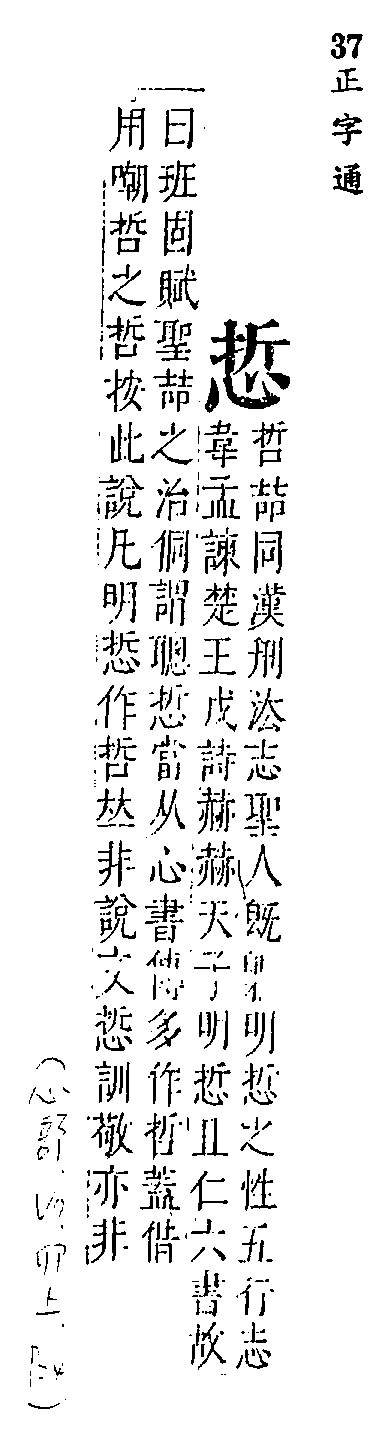 37 正字通
悊
哲喆同漢刑法志聖人既明悊之性五行志
韋孟諫楚王戊詩赫赫天子明悊且仁六書故
曰班固賦聖喆之治侗謂聰悊當从心書傳多作哲蓋借
用嘲哲之哲按此說凡明悊作哲𠀤非說文悊訓敬亦非
（心部